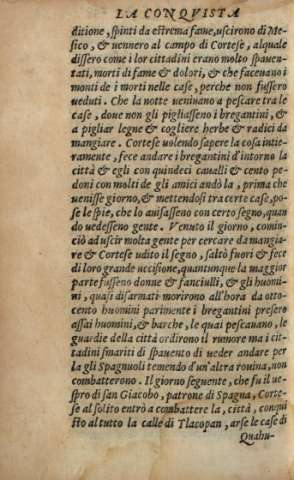 LA CONQVISTA
ditione, spinti da estrema fame, uscirono di Me-
sico, & uennero al campo di Cortese, alquale
dissero come i lor cittadini erano molto spauen-
tati, morti di fame & dolori, & che faceuano i
monti de i morti nelle case, perche non fussero
ueduti. Che la notte ueniuano a pescare tra le
case, doue non gli pigliasseno i bregantini, &
a pigliar legne & cogliere herbe & radici da
mangiare. Cortese uolendo sapere la cosa intie-
ramente, fece andare i bregantini d'intorno la
città & egli con quindeci caualli & cento pe-
doni con molti de gli amici andò la, prima che
uenisse giorno, & mettendosi tra certe case, po-
se le spie, che lo auisasseno con certo segno, quan
do uedesseno gente. Venuto il giorno, comin-
ciò ad uscir molta gente per cercare da mangia-
re & Cortese udito il segno, saltò fuori & fece
di loro grande uccisione, quantunque la maggior
parte fusseno donne & fanciulli, & gli huomi-
ni, quasi disarmati morirono all'hora da otto-
cento huomini parimente i bregantini presero
assai huomini, & barche, le quai pescauano, le
guardie della città ordirono il rumore ma i cit-
tadini smariti di spauento di ueder andare per
la gli Spagnuoli temendo d'un'altra rouina, non
combatterono. Il giorno seguente, che fu il ue-
spro di san Giacobo, patrone di Spagna, Corte-
se al solito entrò a combattere la, città, conqui
sto al tutto la calle di Tlacopan, arse le case di
Quahu-